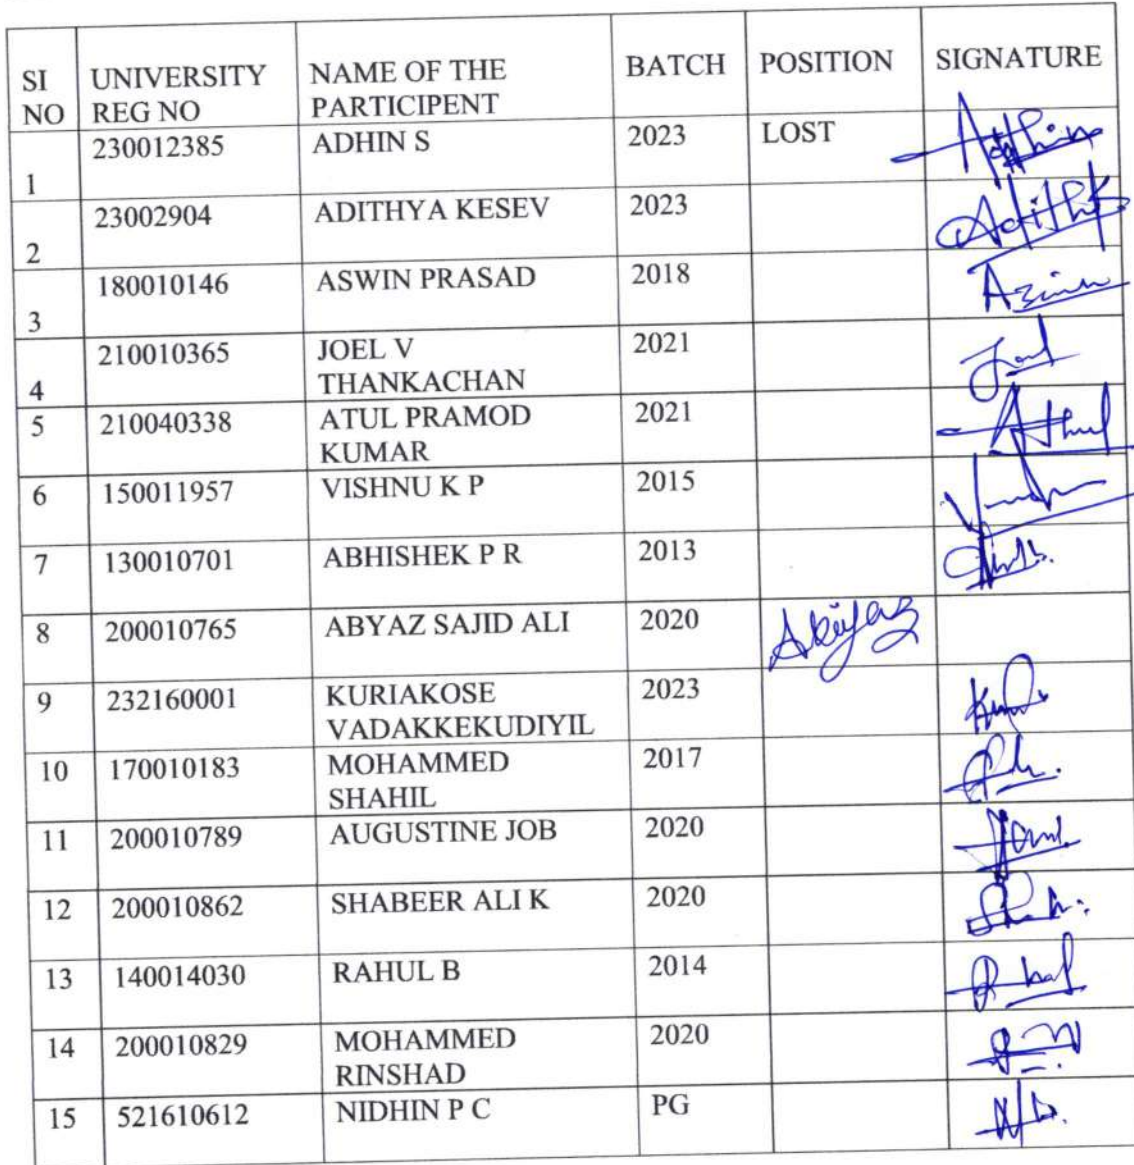 SI NO UNIVERSITY REG NO NAME OF THE PARTICIPENT BATCH POSITION SIGNATURE
1 230012385 ADHIN S 2023 LOST Adhin
2 23002904 ADITHYA KESEV 2023
3 180010146 ASWIN PRASAD 2018
4 210010365 JOEL V THANKACHAN 2021
5 210040338 ATUL PRAMOD KUMAR 2021 Athul
6 150011957 VISHNU K P 2015
7 130010701 ABHISHEK P R 2013
8 200010765 ABYAZ SAJID ALI 2020
9 232160001 KURIAKOSE VADAKKEKUDIYIL 2023
10 170010183 MOHAMMED SHAHIL 2017
11 200010789 AUGUSTINE JOB 2020
12 200010862 SHABEER ALI K 2020
13 140014030 RAHUL B 2014
14 200010829 MOHAMMED RINSHAD 2020
15 521610612 NIDHIN P C PG